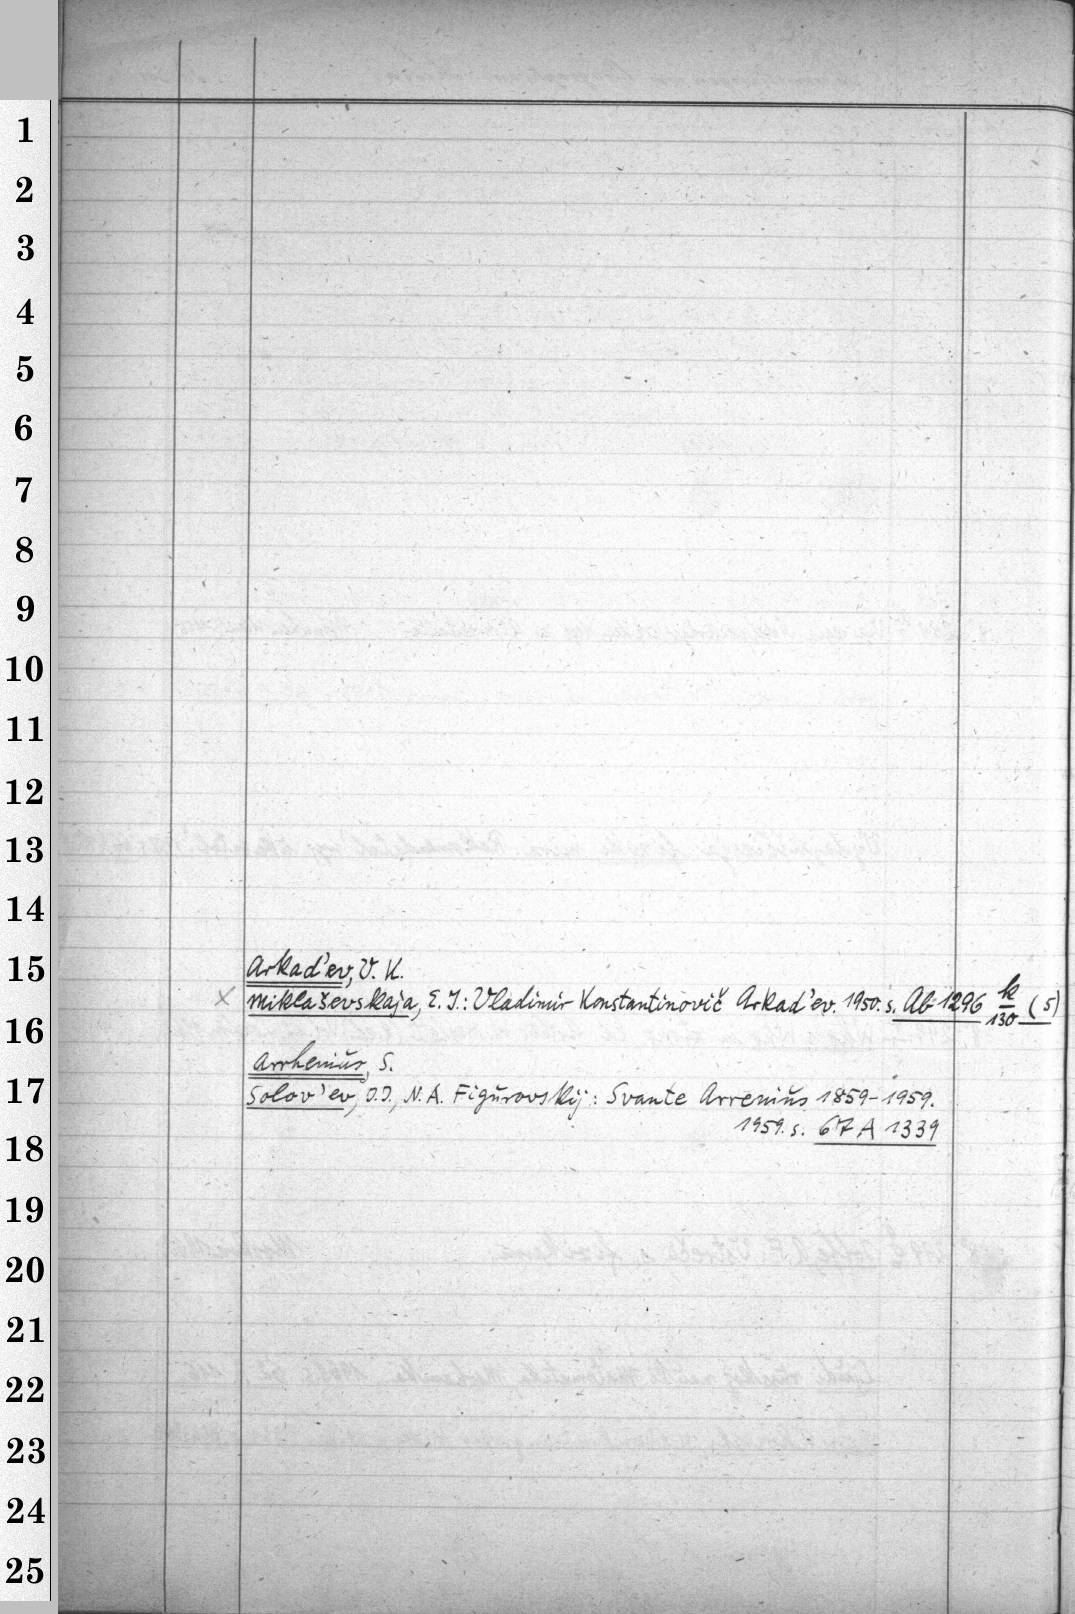 1
2
3
4
5
6
7
8
9
10
11
12
13
14
15
16
17
18
19
20
21
22
23
24
25
Arkad'ev, V. K.
x Miklaševskaja, E. I.: Vladimir Konstantinovič Arkad'ev. 1950. s. Ab 1296 k/130 (5)
Arrhenius, S.
Solov'ev, J. I., N. A. Figurovskij: Svante Arrenius 1859-1959.
1959. s. 67 A 1339